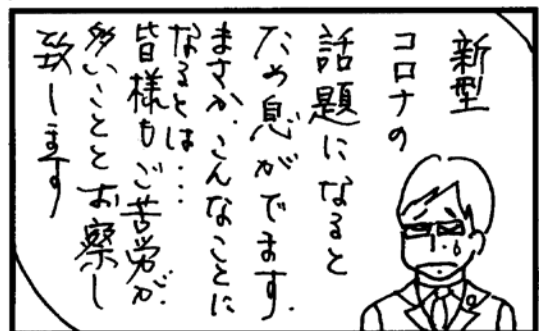 新型
コロナの
話題になると
ため息がでます.
まさか.こんなことに
なるとは…
皆様もご苦労が.
多いこととお察し
致します